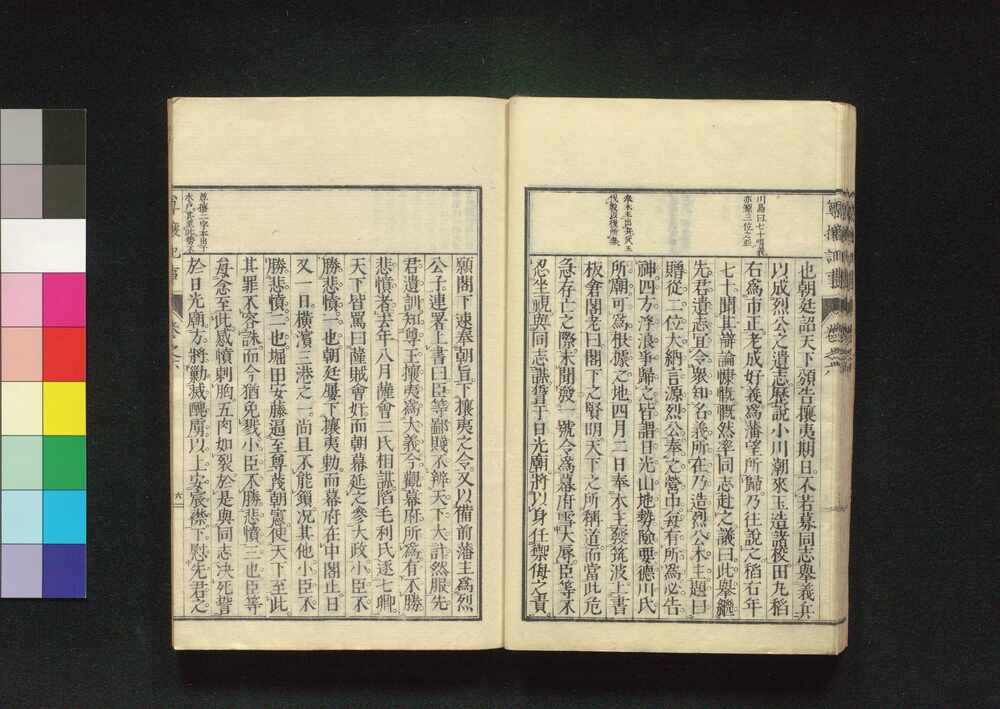 川島曰七十唱義
亦繼三位之些
奉木主出兵武王
伐殷以後所無
也朝廷詔天下頒告攘夷期日不若募同志擧義兵
以成烈公之遺志歷說小川潮來玉造諸校田丸稻
右爲市正老成好義爲藩望所歸乃往說之稻右年
七十聞其辯論慷慨慨然率同志赴之議曰此擧繼
先君遺志宜令衆知名義所在乃造烈公木主題曰
贈從二位大納言源烈公奉之營中每有所爲必告
神四方浮浪爭歸之皆謂日光山地勢險要德川氏
所廟可爲根據之地四月二日奉木主發筑波上書
板倉閣老曰閣下之賢明天下之所稱道而當此危
急存亡之際未聞發一號令爲幕府雪大辱臣等不
忍坐視與同志謀誓于日光廟將以身任禦侮之責
願閣下速奉朝旨下攘夷之令又以備前藩主爲烈
公子連署上書曰臣等鄙賤不辨天下大計然服先
君遺訓知尊王攘夷爲大義今觀幕府所爲有不勝
悲憤者去年八月薩會二氏相謀陷毛利氏逐七卿
天下皆罵曰薩賊會奸而朝幕延之參大政小臣不
勝悲憤一也朝廷屢下攘夷勅而幕府在中閣止日
又一日橫濱三港之一尚且不能鎖况其他小臣不
勝悲憤二也堀田安藤逼至尊蔑朝憲使天下至此
其罪不容誅而今猶免戮小臣不勝悲憤三也臣等
每念至此感憤刺胸五肉如裂於是與同志决死誓
於日光廟方將勦滅醜虜以上安宸襟下慰先君之
尊攘二字本出于
水戶
尊攘紀事
六